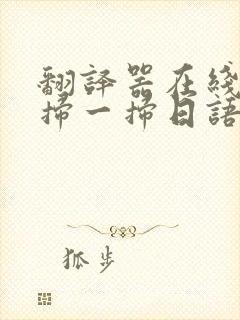 翻譯器在綫
掃一掃日語
狐步